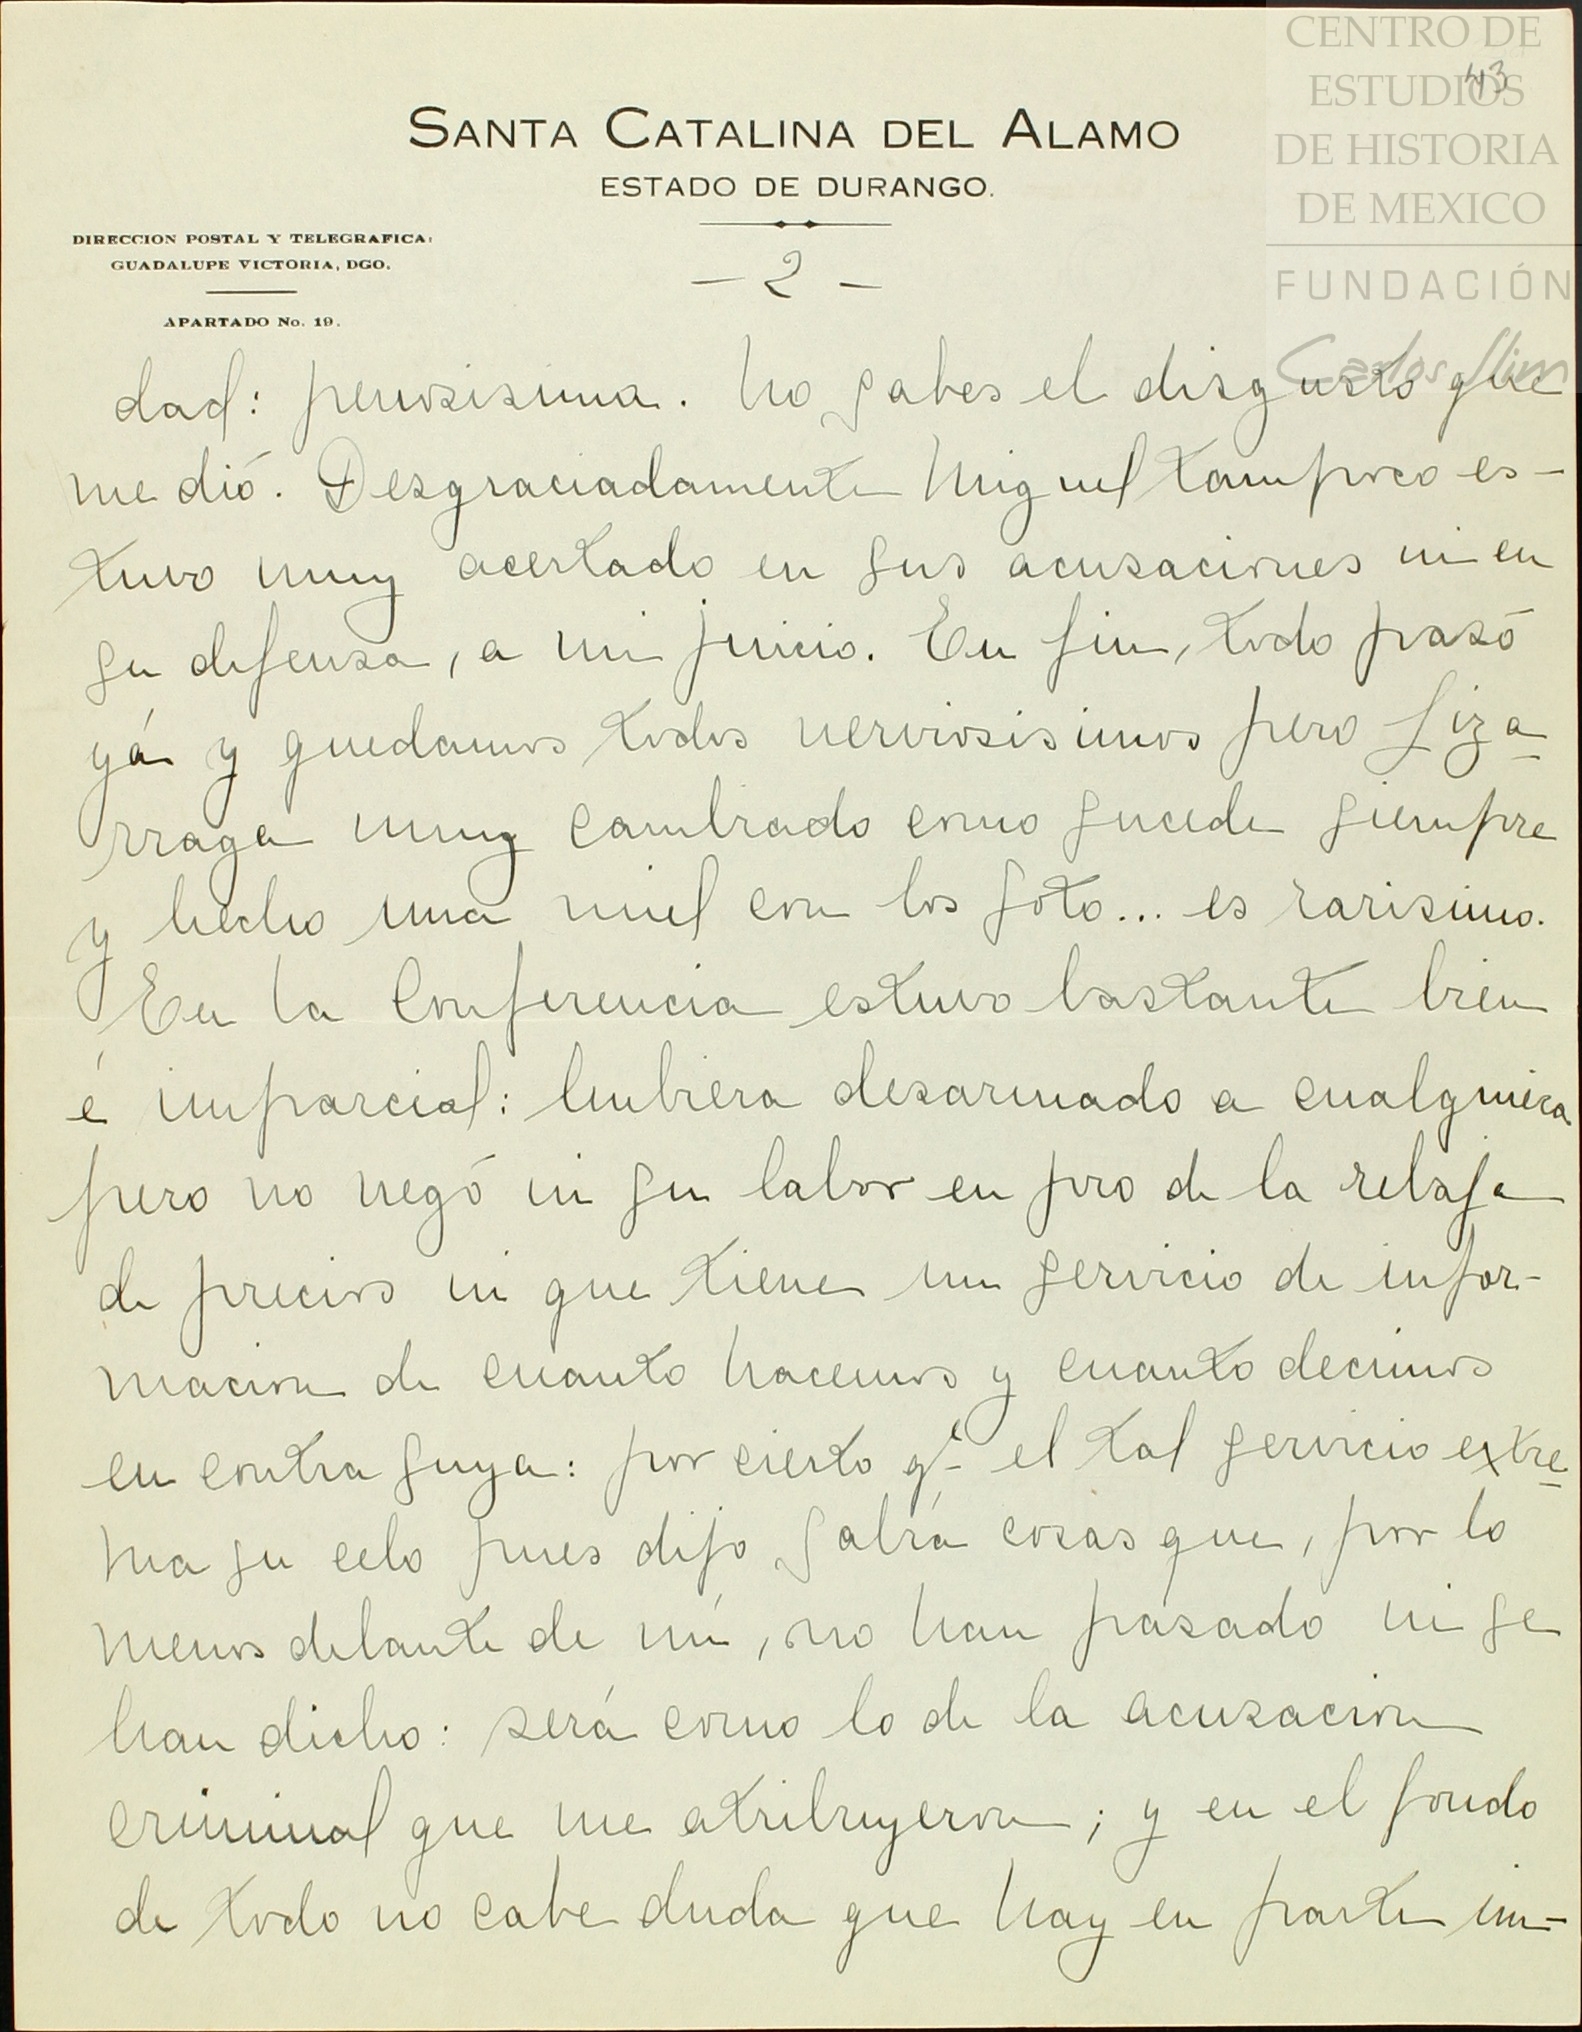 CENTRO DE
ESTUDIOS
DE HISTORIA
DE MEXICO
FUNDACIÓN
Carlos Slim
43
SANTA CATALINA DEL ALAMO
ESTADO DE DURANGO.
DIRECCION POSTAL Y TELEGRAFICA:
GUADALUPE VICTORIA, DGO.
APARTADO No. 19.
- 2 -
dad: penosisima. No sabes el disgusto que
me dió. Desgraciadamente Miguel tampoco es-
tuvo muy acertado en sus acusaciones ni en
su defensa, a mi juicio. En fin, todo pasó
yá y quedamos todos nerviosisimos pero Liza-
rraga muy cambiado como sucede siempre
y hecho una miel con los Soto... es rarisimo.
En la Conferencia estuvo bastante bien
é imparcial: hubiera desarmado a cualquiera
pero no negó ni su labor en pro de la rebaja
de precios ni que tiene un servicio de infor-
macion de cuanto hacemos y cuanto decimos
en contra suya: por cierto qe el tal servicio extre-
ma su celo pues dijo sabía cosas que, por lo
menos delante de mí, no han pasado ni se
han dicho: será como lo de la acusacion
criminal que me atribuyeron; y en el fondo
de todo no cabe duda que hay en parte in-